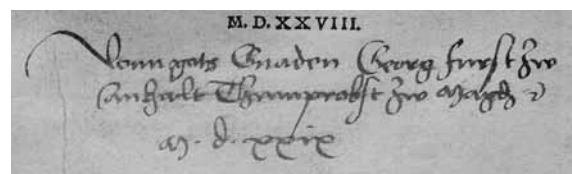 M. D. XXVIII.
Vonn gots Gnaden Georg furst zw
Anhalt Thumprobst zw Magd
M. d. xxix